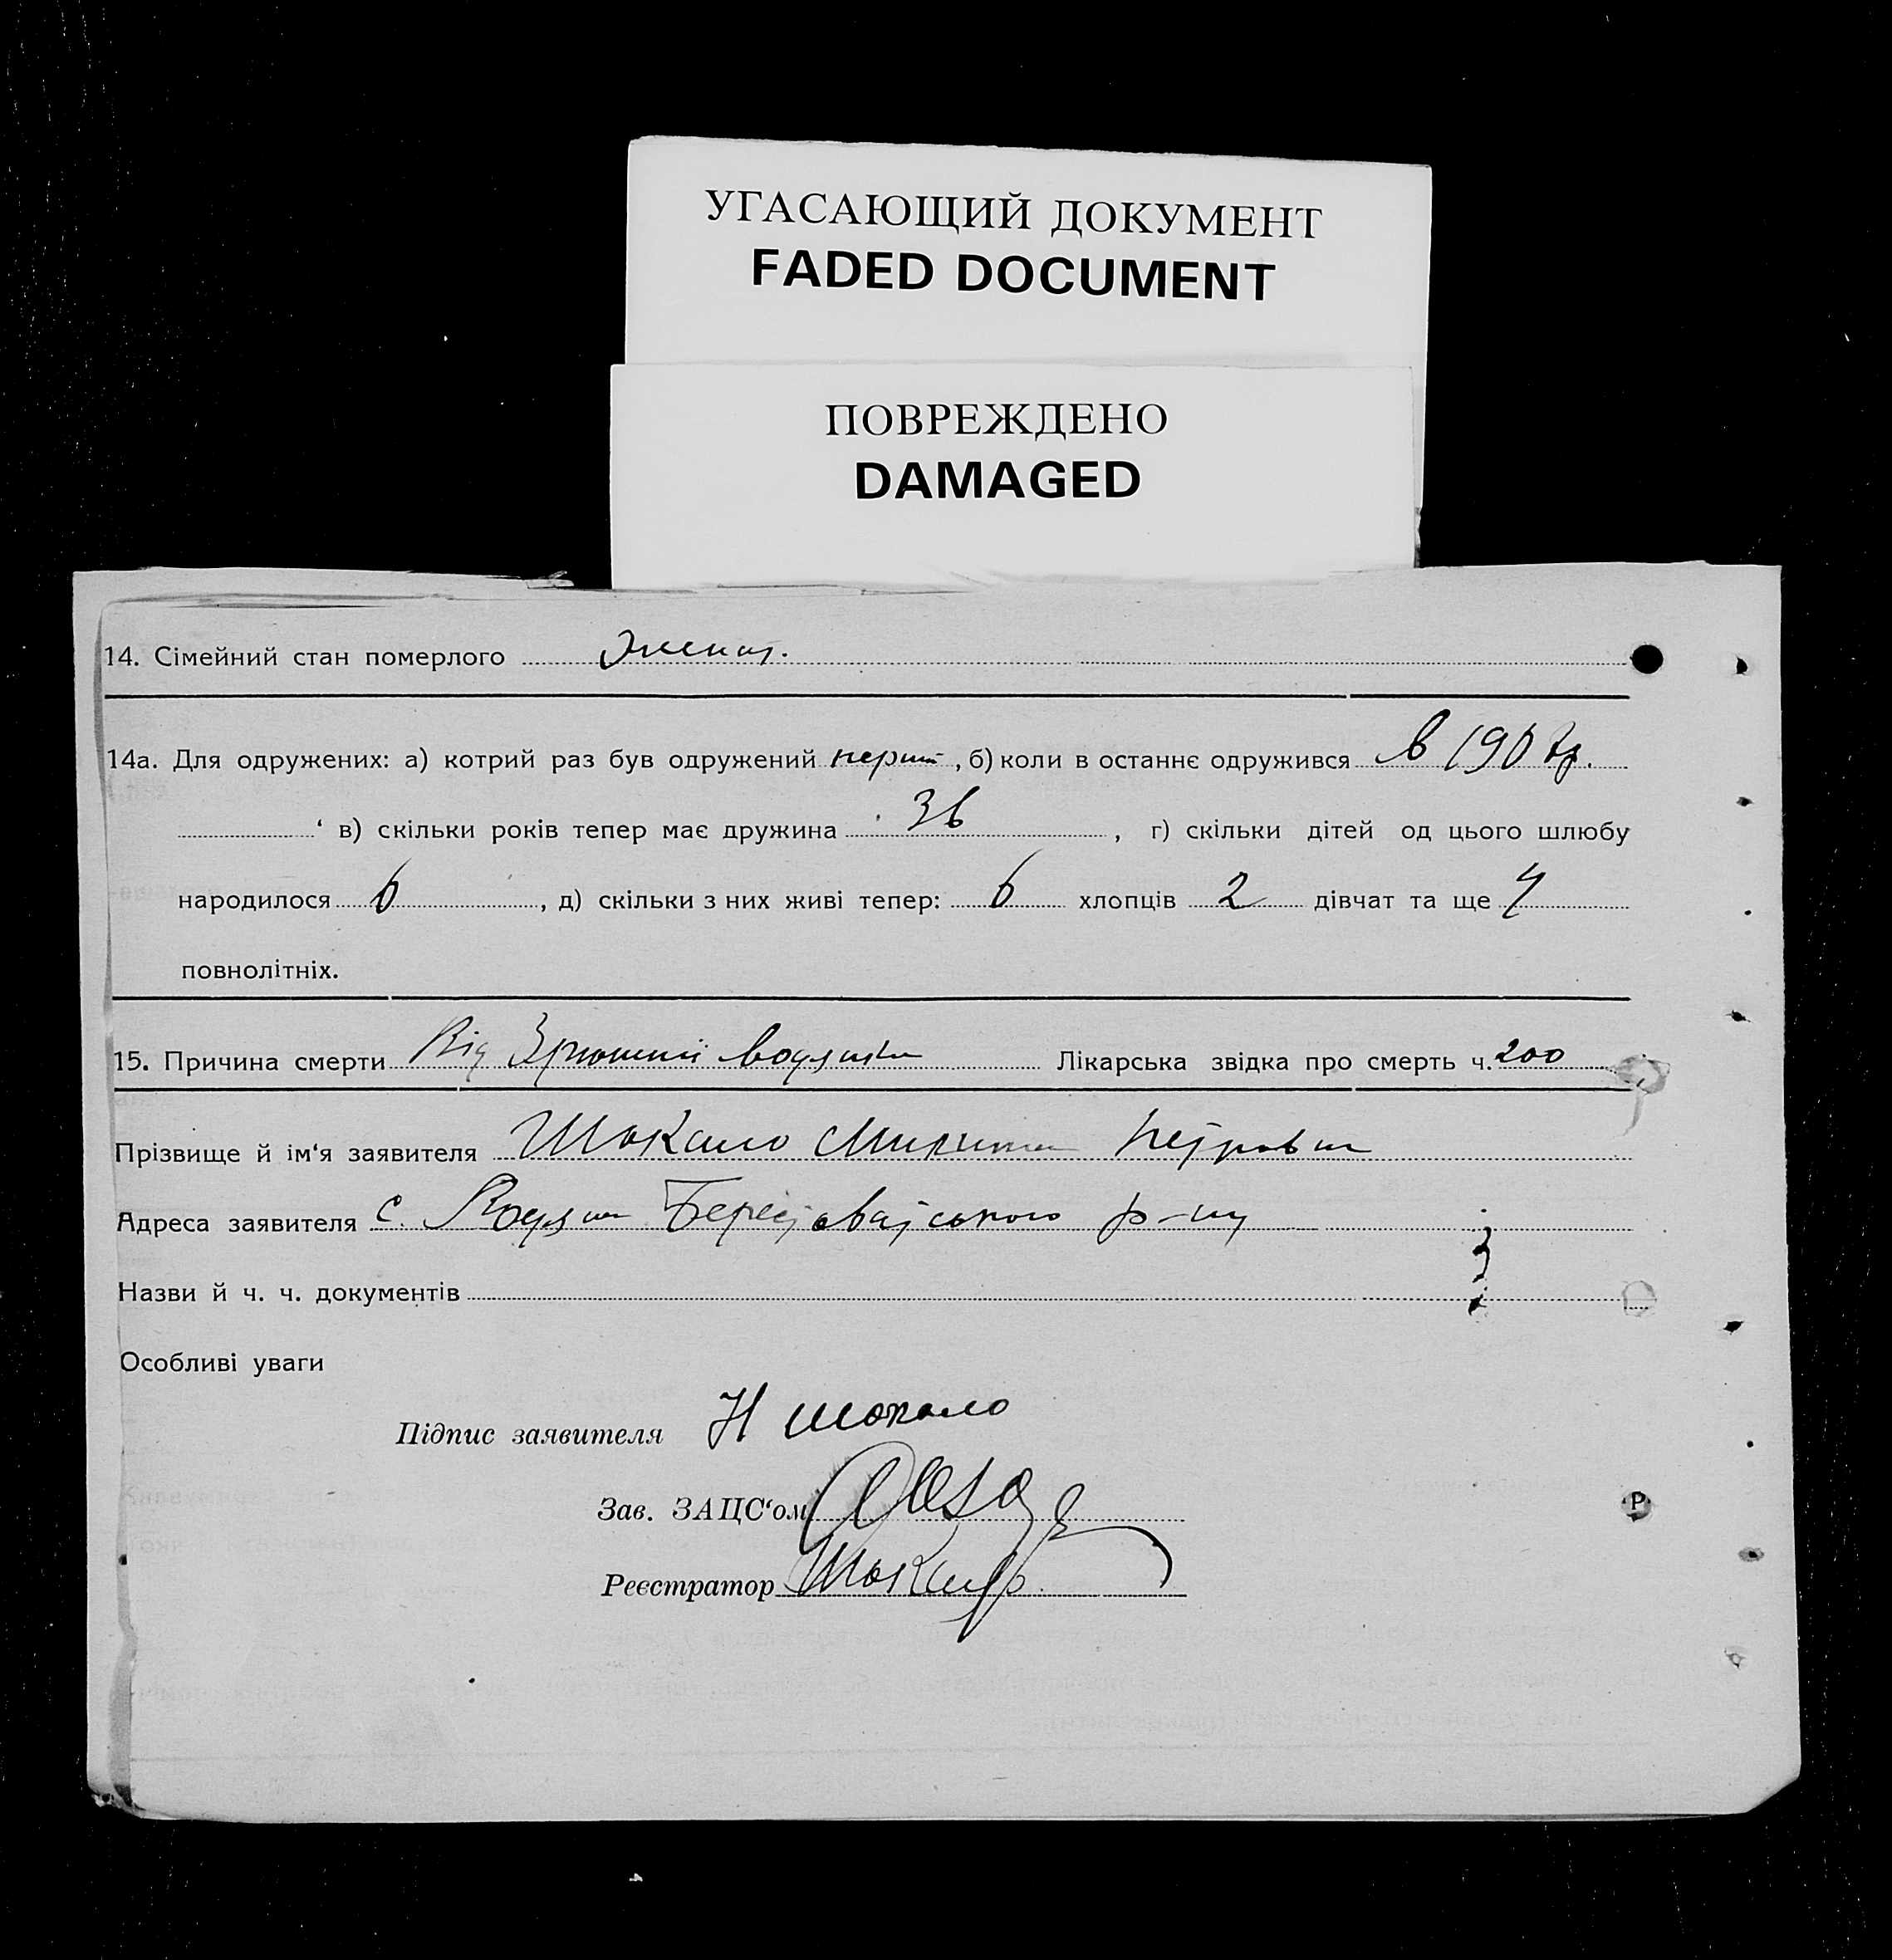 УГАСАЮЩИЙ ДОКУМЕНТ
FADED DOCUMENT
ПОВРЕЖДЕНО
DAMAGED
14. Сімейний стан померлого
14а. Для одружених: а) котрий раз був одружений перший, б) коли в останнє одружився в 190
‘ в) скільки років тепер має дружина 36, г) скільки дітей од цього шлюбу
народилося 6, д) скільки з них живі тепер: 6 хлопців 2 дівчат та ще 4
повнолітніх.
15. Причина смерти Від водянки Лікарська звідка про смерть ч. 200
Прізвище й ім‘я заявителя Шокало Микита Петрович
Адреса заявителя с. р-ну
Назви й ч. ч. документів
Особливі уваги
Підпис заявителя Н Шокало
Зав. ЗАЦС‘ом
Реєстратор
Р